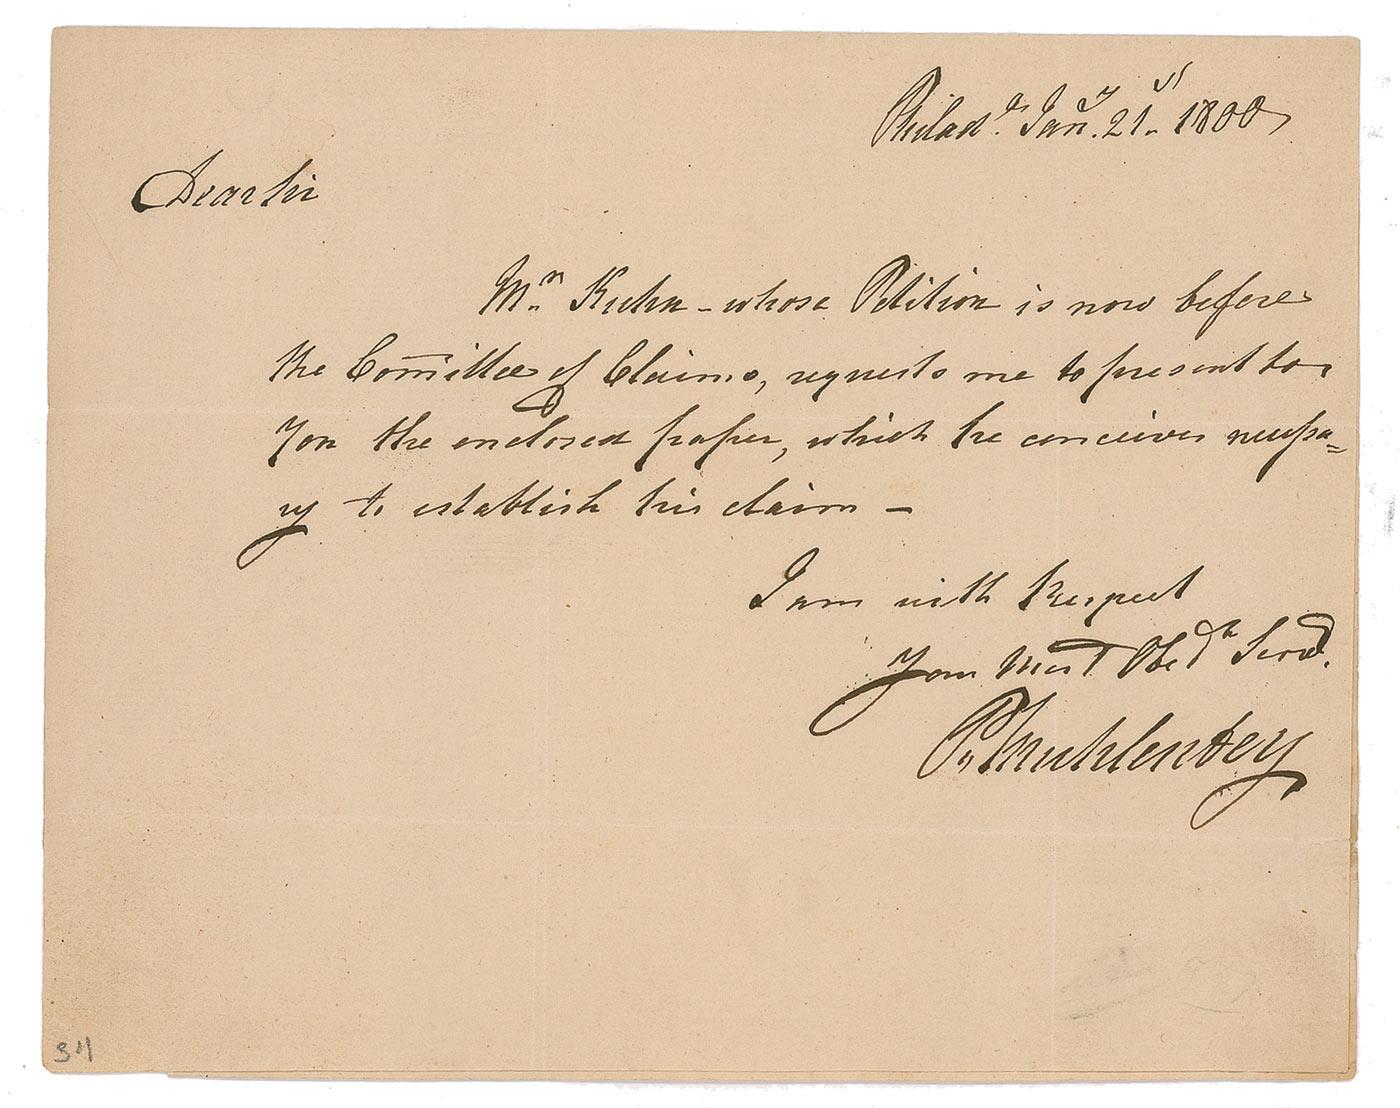 Philad.ª Jan.y 21.st 1800,
Dear Sir
Mr. Kuhn – whose Petition is now before
the Com̄ittee of Claims, requests me to present to
You the enclosed paper, which he conceives necessa=
ry to establish his claim –
I am with Respect
Your Most Obed.t Serv.t
P. Muhlenberg